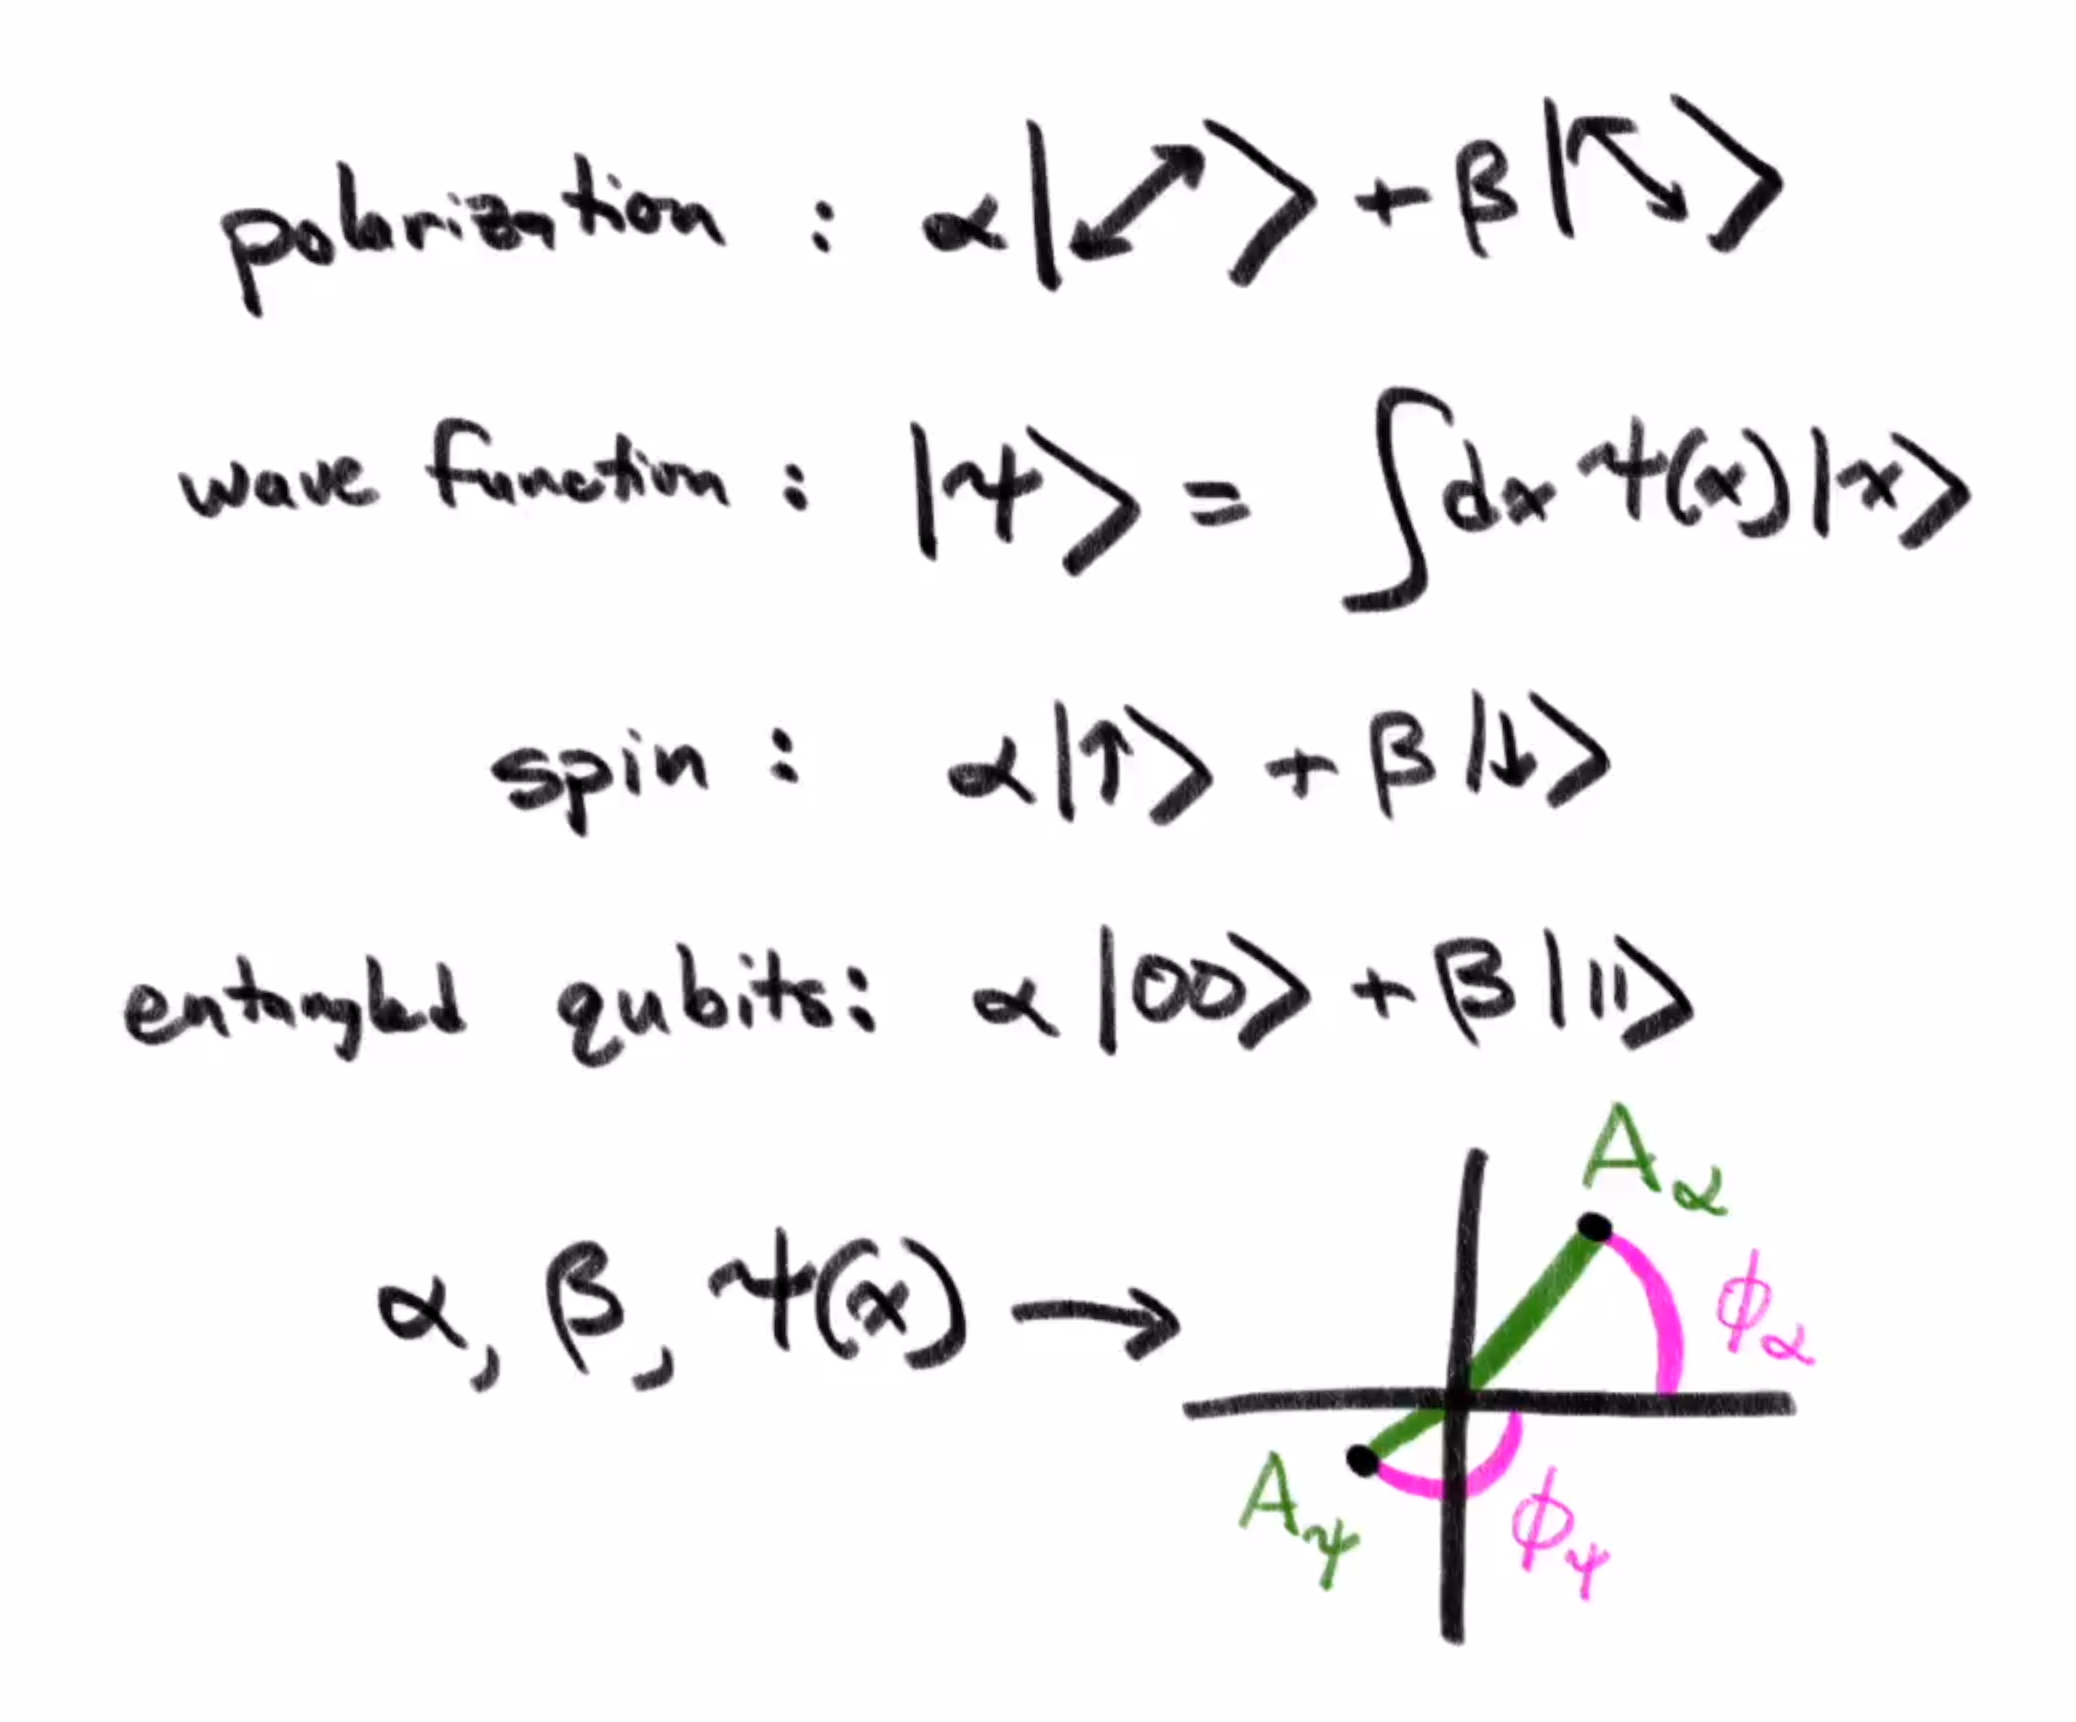 polarization : α|⤢⟩ + β|⤡⟩
wave function : |ψ⟩ = ∫dx ψ(x)|x⟩
spin : α|↑⟩ + β|↓⟩
entangled qubits: α|00⟩ + β|11⟩
α, β, ψ(x) →
A_α
ϕ_α
A_ψ
ϕ_ψ